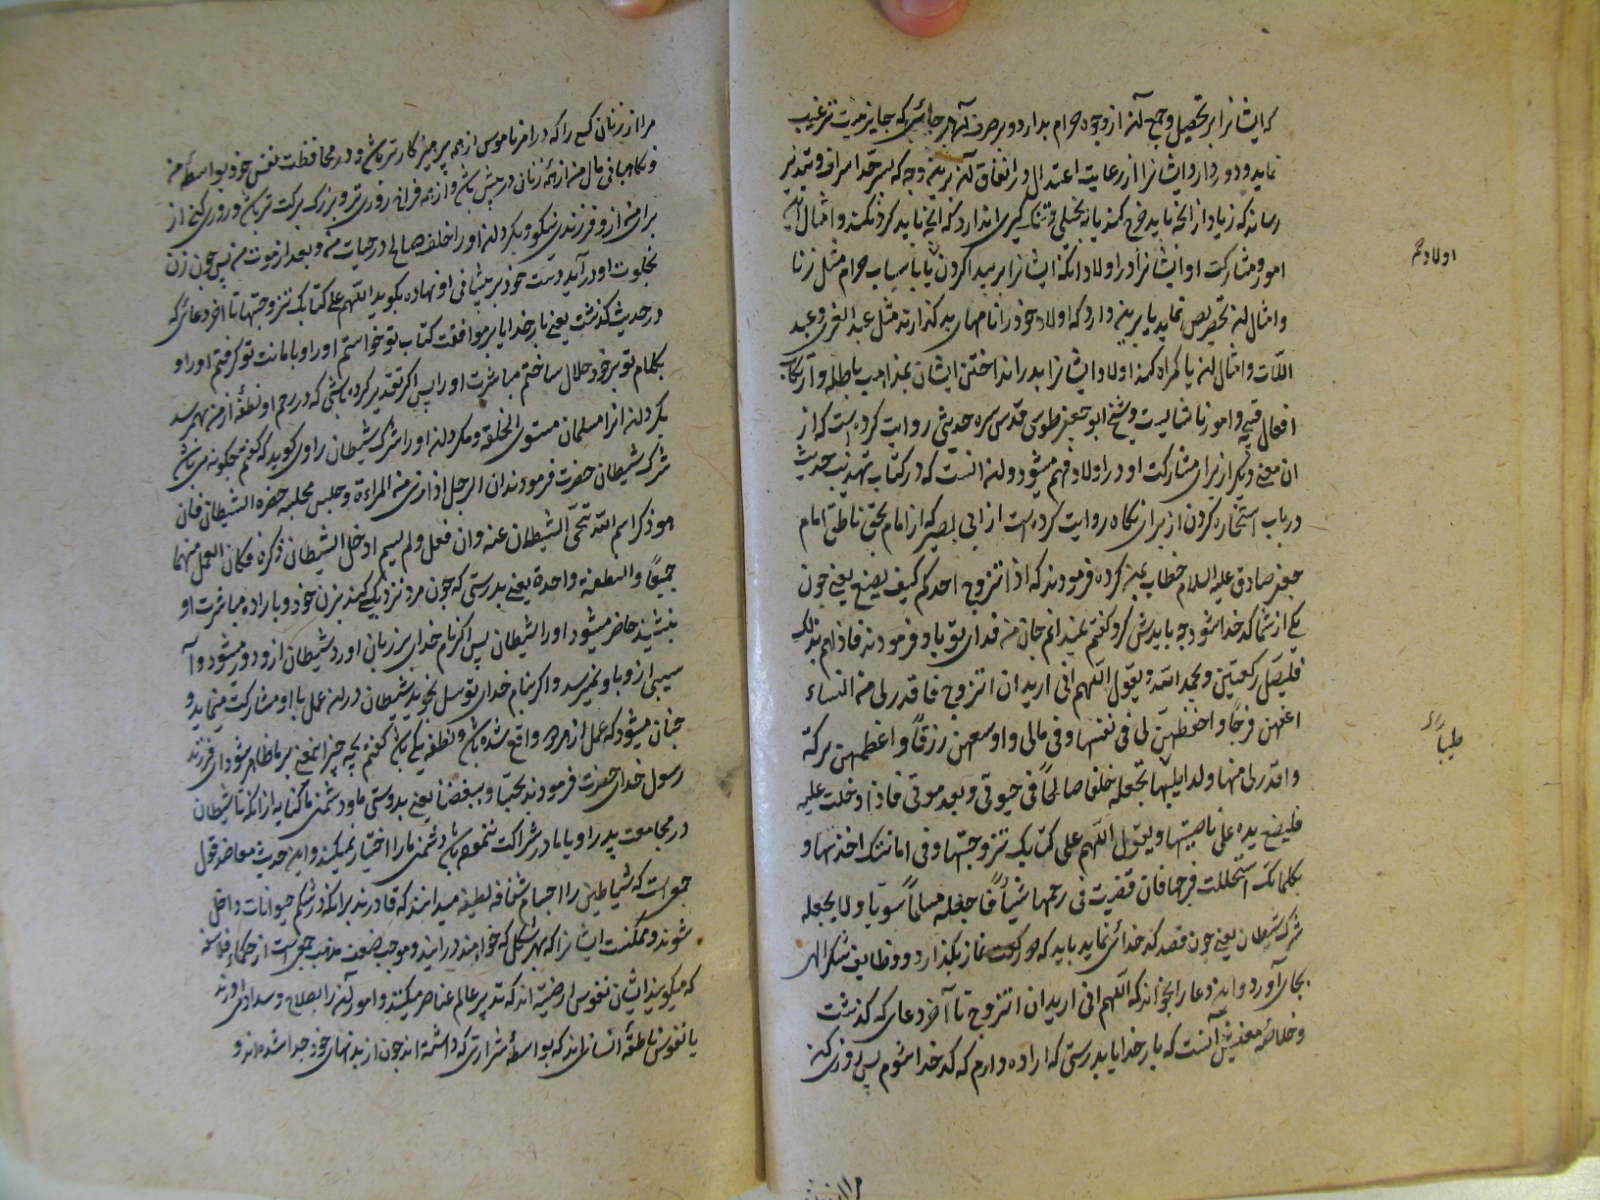 که ایشانرا بر تحصیل و جمع آن از وجوه حرام بدارد و بر صرف آنها بر جائی که جایز نیست ترغیب
نماید و دور دارد ایشانرا از رعایت اعتدال در انفاق آن برین وجه که بسر حد اسراف و تبذیر
رساند که زیاد از آنچه باید خرج کنند یا به بخیلی و تنگ گیری اندازد که آنچه باید کرد نکنند و امثال این
امور و مشارکت او ایشانرا در اولاد آنکه ایشانرا بر پیدا کردن با سباب حرام مثل زنا
اولاد هم
و امثال آن تحریص نماید یا برین دارد که اولاد خود را نامهای بد گذارند مثل عبد العزی و عبد
اللات و امثال آن یا گمراه کند اولاد ایشانرا بدر انداختن ایشان بمذاهب باطله و ارتکاب
افعال قبیحه و امور ناشایست و شیخ ابو جعفر طوسی قدس سره حدیثی روایت کرده است که از
ان معنی دیگر از برای مشارکت او در اولاد فهم میشود و آن انست که در کتاب تهذیب حدیث
در باب استخاره کردن از برای نکاه روایت کرده است از ابی بصیر که از امام بحق ناطق امام
جعفر صادق علیه السلام خطاب بمن کرده فرمودند که اذا تزوج احدکم کیف یصنع یعنی چون
یکی از شما کد خدا شود چه بایدش کرد گفتم نمیدانم جان من فدای تو باد فرمودند فاذا هم بذلک
فلیصل رکعتین و یحمد الله و یقول اللهم انی ارید ان اتزوج فاقدر لی من النساء
اعفهن فرجا و احفظهن لی فی نفسها و فی مالی و اوسعهن رزقا و اعظمهن برکة
طیبا
و اقدر لی منها ولدا تجعله خلفا صالحا فی حیوتی و بعد موتی فاذا دخلت علیه
فلیضع یده علی ناصیتها و یقول اللهم علی کتابک تزوجتها و فی امانتک اخذتها و
بکلماتک استحللت فرجها فان قضیت فی رحمها شیئا فاجعله مسلما سویا و لا یجعله
شرک شیطان یعنی چون قصد کد خدائی نماید باید که دو رکعت نماز بگذارد و وظایف شکر الهی
بجای آورد و این دعا را بخواند که اللهم انی ارید ان اتزوج تا آخر دعای که گذشت
و خلاصه معنیش آنست که بار خدایا بدرستی که اراده دارم که کد خدا شوم پس روزی کن
مرا از زنان
مرا از زنان کسی را که در امر ناموس از همه پرهیز کارتر باشد و در محافظت نفس خود بواسطه من
و نگاهبانی مال من از همه زنانی در پیش باشد و از همه فراخ روزی تر و بزرگ برکت تر باشد و روزی کن از
برای من از و فرزندی نیکو و بگردان او را خلف صالح در حیات من و بعد از موت من پس چون زن
بخلوت او در آید دست خود بر پیشانی او نهاده بگوید اللهم علی کتابک تزوجتها تا آخر دعائی که
در حدیث گذشت یعنی بار خدایا بر موافقت کتاب تو خواستم او را و بامانت تو گرفتم او را و
بکلام تو بر خود حلال ساختم مباشرت او را پس اگر تقدیر کرده باشی که در رحم او نطفهٔ از من بهم رسد
بگردان انرا مسلمان مستوی الخلقه و مگردان او را شرک شیطان راوی گوید که گفتم چگونه می باشد
شرک شیطان حضرت فرمودند ان الرجل اذا دنی من المراءة و جلس مجلسه حضره الشیطان فان
هو ذکر اسم الله تنحی الشیطان عنه و ان فعل و لم یسم ادخل الشیطان ذکره فکان العمل منهما
جمیعا و النطفة واحدة یعنی بدرستی که چون مرد نزدیکی کند بزن خود و باراده مباشرت او
بنشیند حاضر میشود او را شیطان پس اگر نام خدای بر زبان اورد شیطان از و دور میشود و آ
سیبی از و باو نمیرسد و اگر بنام خدای توسل نجوید شیطان در ان عمل با او مشارکت مینماید و
چنان میشود که عمل از هر دو واقع شده باشد و نطفه یکی باشد گفتم بچه چیز اینمعنی بر ما ظاهر شود ای فرزند
رسول خدای حضرت فرمودند بحبنا و ببغضنا یعنی بدوستی ما و دشمنی ما کنایه از آنکه تا شیطان
در مجامعت پدر او یا مادر شراکت ننموده باشد دشمنی ما را اختیار نمیکند و این حدیث معاضد قول
جمعی است که شیاطین را اجسام شفافه لطیفه میدانند که قادرند برانکه در شکم حیوانات داخل
شوند و ممکنست ایشانرا که بهر شکل که خواهند در ایند و موجب ضعف مذهب جمعی است از حکماء فلاسفه
که میگویند ایشان نفوس ارضیه اند که تدبیر عالم عناصر میکنند و امور آن را بصلاح و سداد می اورند
یا نفوس ناطقهٔ انسانی اند که بواسطهٔ شرارتی که داشته اند چون از بدنهای خود جدا شده اند و